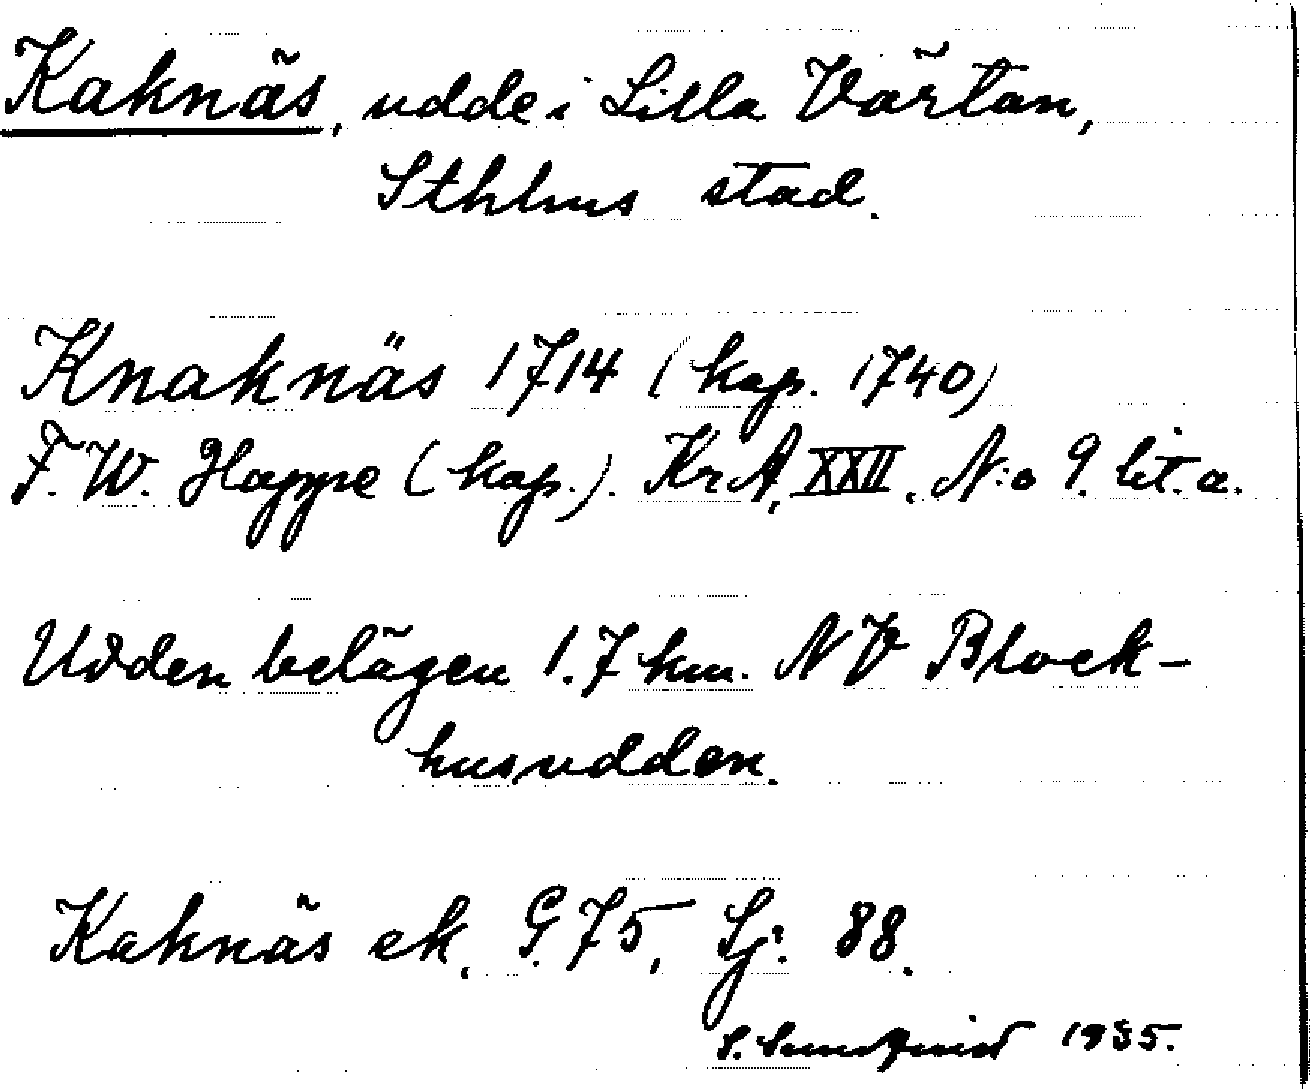 Kaknäs, udde i Lilla Värtan,
Sthlms stad.
Knaknäs 1714 (kop. 1740)
F. W. Happe (kop.). KrA, XXII, N:o 9. lit. a.
Udden belägen 1.7 km. NV Block-
husudden.
Kaknäs ek. G. 75, Sj: 88.
S. Sundqvist 1935.